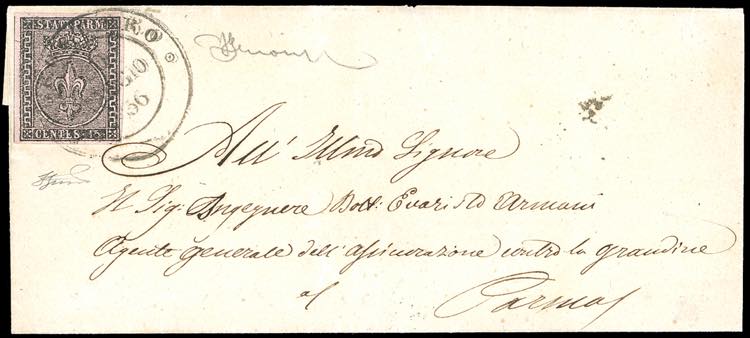 STATI PARM.
CENTES. 15
RO
GIO
56
All' Illmo Signore
Il Sig: Ingegnere Dott: Evaristo Armani
Agente Generale dell'Assicurazione contro la grandine
Parma